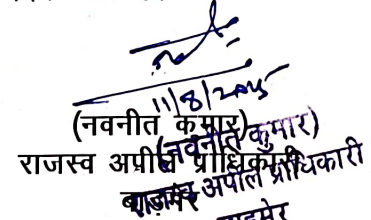 11/8/2025
(नवनीत कुमार)
राजस्व अपील प्राधिकारी
बाड़मेर
(नवनीत कुमार)
राजस्व अपील प्राधिकारी
बाड़मेर